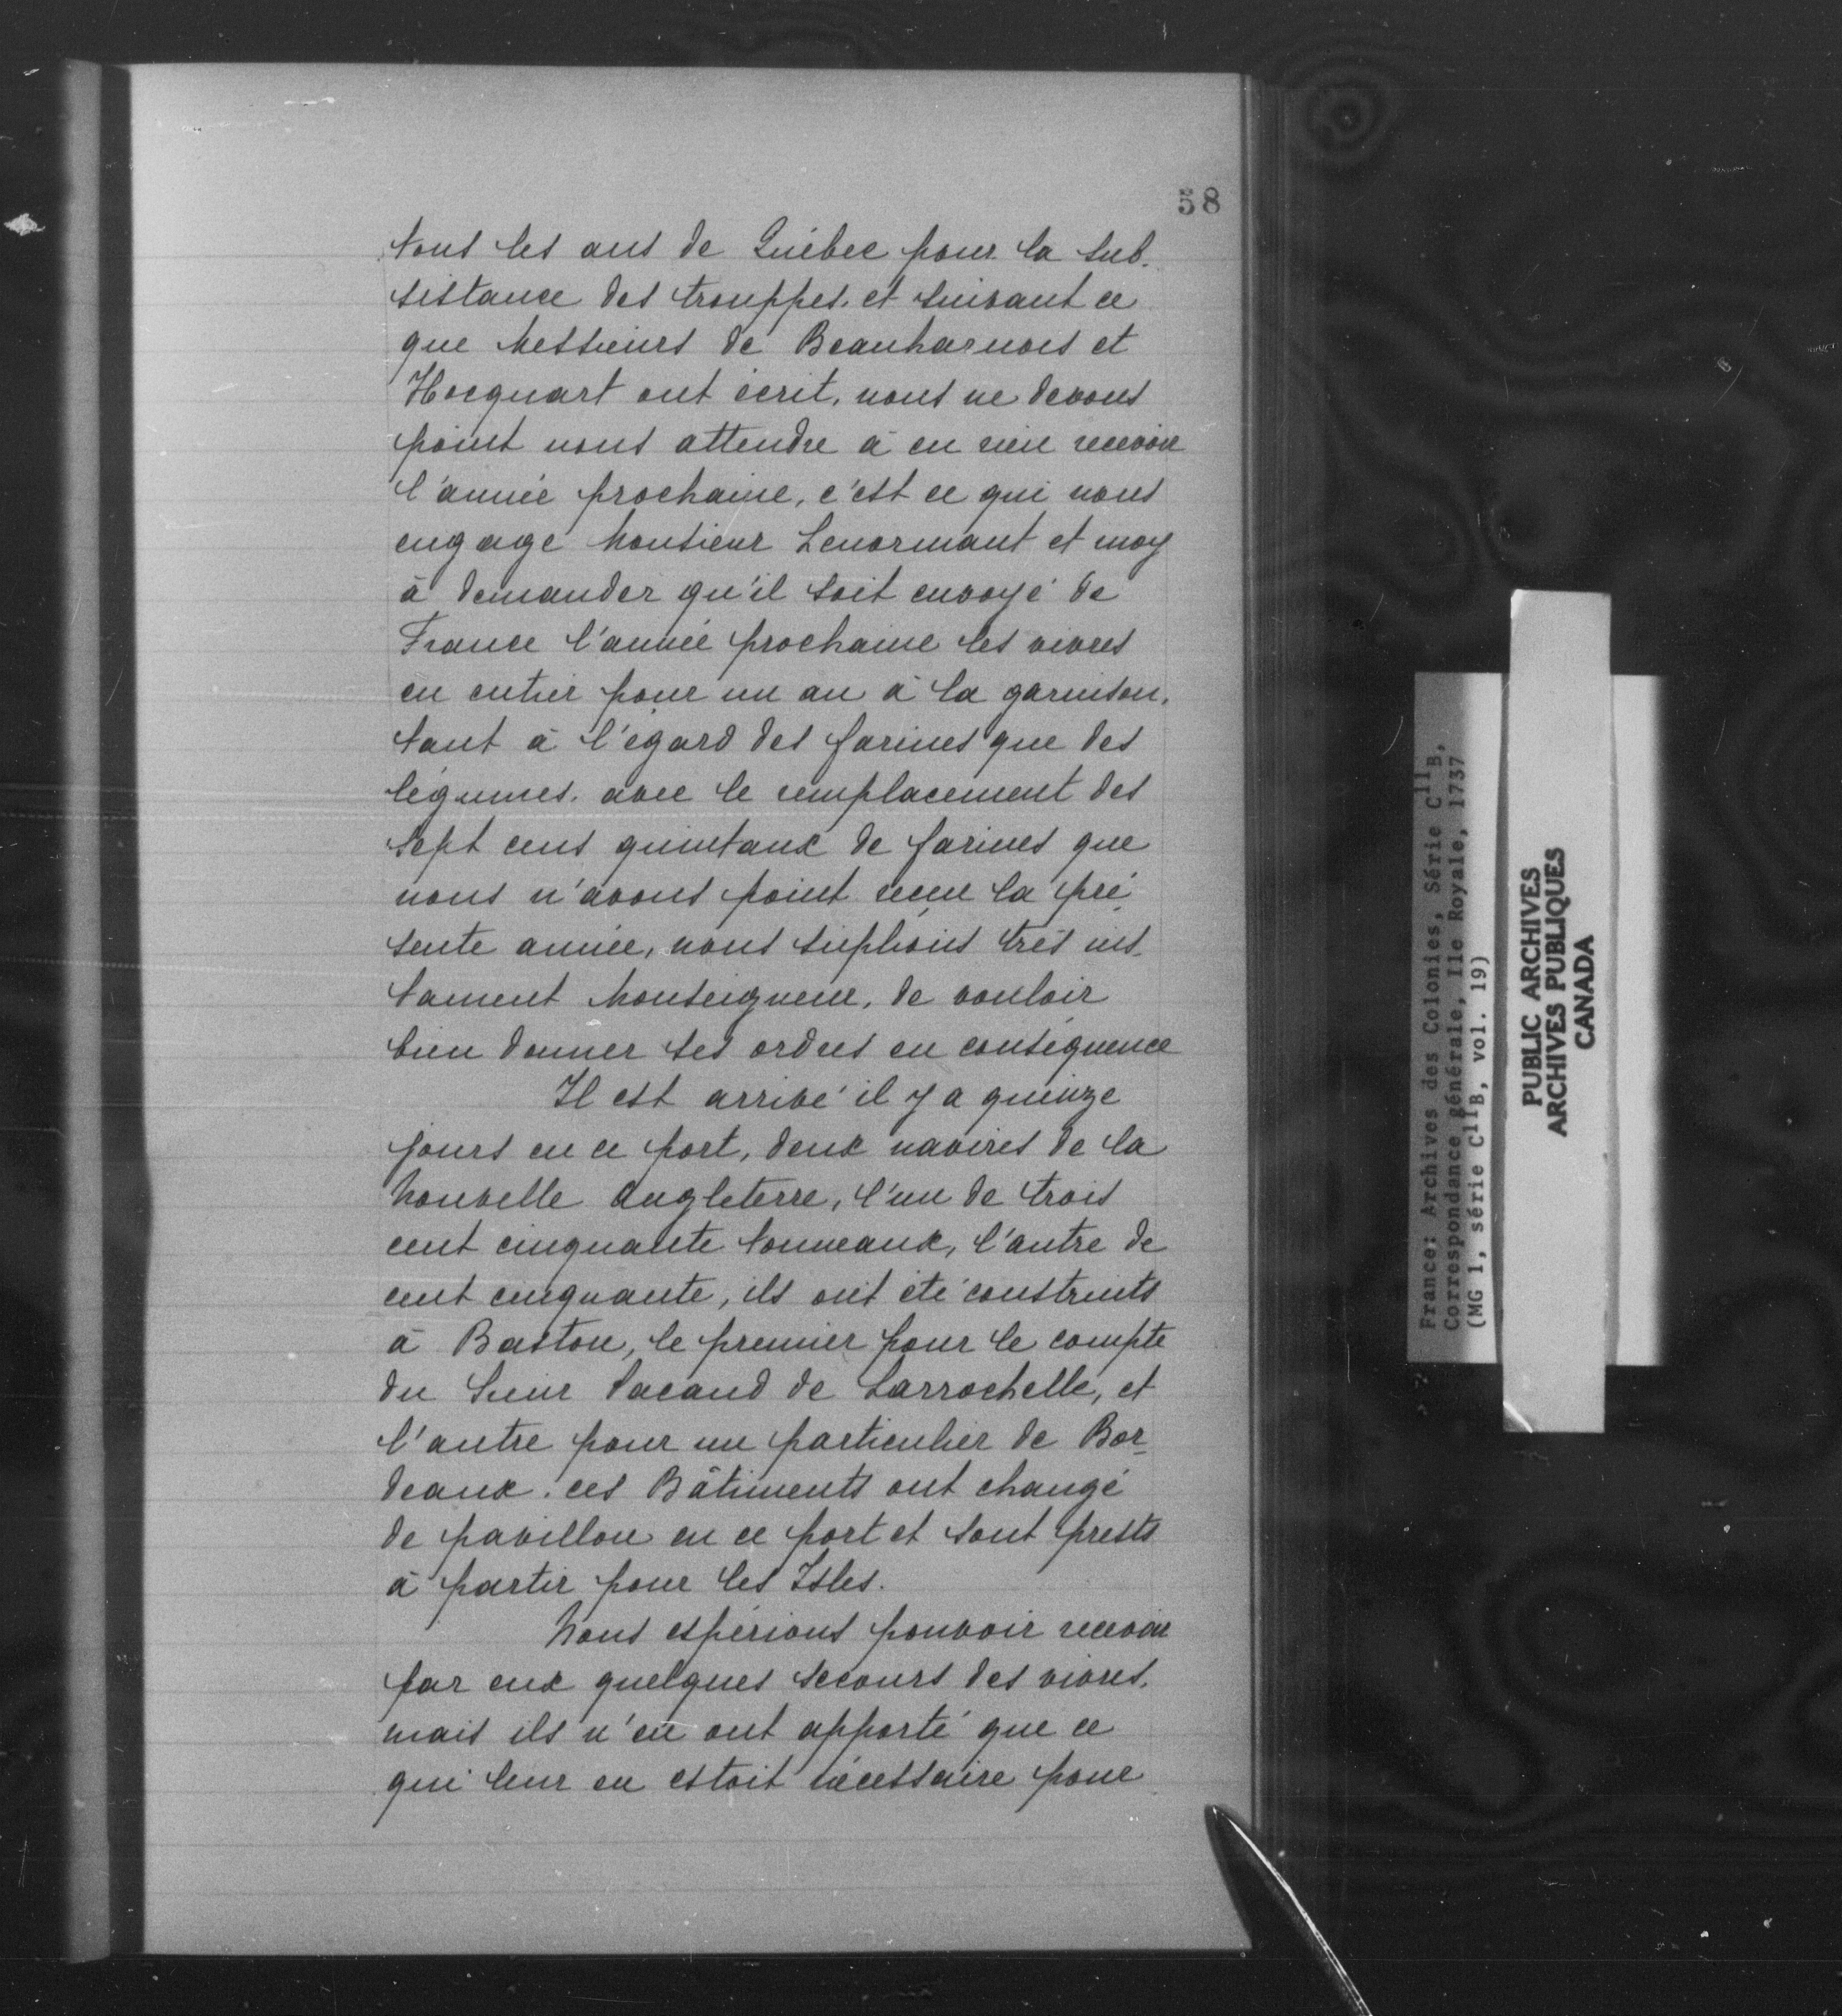 58
tous les ans de Québec pour la sub-
sistance des trouppes, et suivant ce
que Messieurs de Beauharnois et
Hocquart ont écrit, nous ne devons
point nous attendre à en rien recevoir
l'année prochaine, c'est ce qui nous
engage Monsieur Lenormant et moy
à demander qu'il soit envoyé de
France l'année prochaine les vivres
en entier pour un an à la garnison,
tant à l'égard des farines que des
légumes, avec le remplacement des
sept cens quintaux de farines que
nous n'avons point reçu la pré-
sente année, nous suplions très ins-
tament Monseigneur, de vouloir
bien donner ses ordres en conséquence
Il est arrivé il y a quinze
jours en ce port, deux navires de la
Nouvelle Angleterre, l'un de trois
cent cinquante tonneaux, l'autre de
cent cinquante, ils ont été construits
à Baston, le premier pour le compte
du Sieur Pacaud de Larrochelle, et
l'autre pour un particulier de Bor-
deaux. ces Bâtiments ont changé
de pavillon en ce port et sont prests
à partir pour les Isles.
Nous espérions pouvoir recevoir
par eux quelques secours des vivres,
mais ils n'en ont apporté que ce
qui leur en estoit nécessaire pour
France: Archives des Colonies, Série C11B,
Correspondance générale, Ile Royale, 1737
(MG 1, série C11B, vol. 19)
PUBLIC ARCHIVES
ARCHIVES PUBLIQUES
CANADA